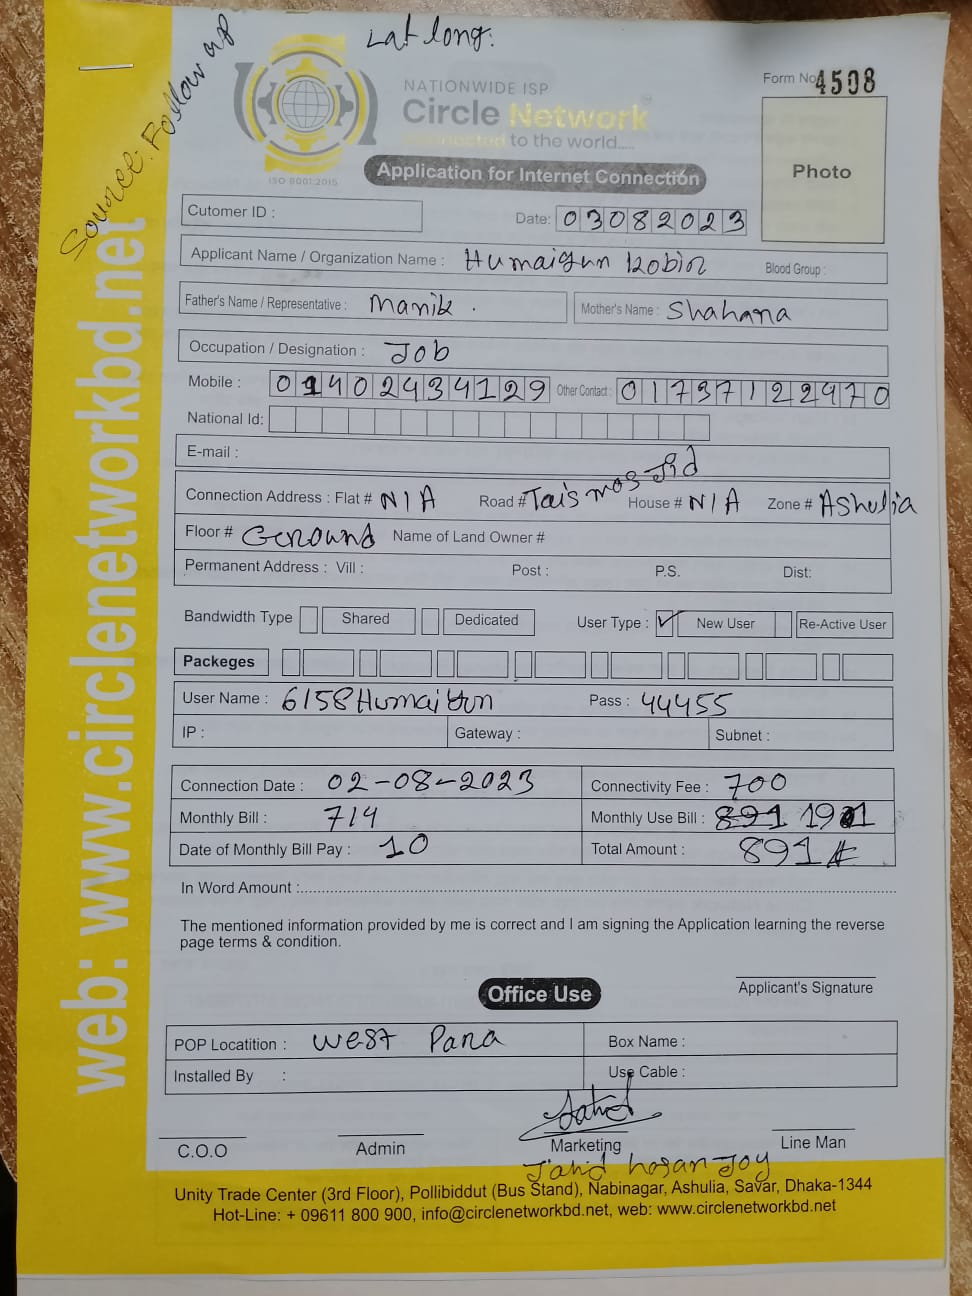 Lat long:
Source: Follow up
NATIONWIDE ISP
Form No 4508
Circle Network
connected to the world.....
ISO 9001:2015
Application for Internet Connection
Photo
Cutomer ID :
Date: 03082023
Applicant Name / Organization Name : Humaigun Robin Blood Group :
Father's Name / Representative : Manik . Mother's Name : Shahana
Occupation / Designation : Job
Mobile : 01402434129 Other Contact : 01737122970
National Id:
E-mail :
Connection Address : Flat # N/A Road # Tais mosjid House # N/A Zone # Ashulia
Floor # Ground Name of Land Owner #
Permanent Address : Vill : Post : P.S. Dist:
Bandwidth Type Shared Dedicated User Type : New User Re-Active User
Packeges
User Name : 6158Humaiun Pass : 44455
IP : Gateway : Subnet :
Connection Date : 02-08-2023 Connectivity Fee : 700
Monthly Bill : 714 Monthly Use Bill : 891 191
Date of Monthly Bill Pay : 10 Total Amount : 891
In Word Amount :
The mentioned information provided by me is correct and I am signing the Application learning the reverse
page terms & condition.
Applicant's Signature
Office Use
POP Locatition : West Para Box Name :
Installed By : Use Cable :
C.O.O Admin Marketing Line Man
Jahid hosan Joy
Unity Trade Center (3rd Floor), Pollibiddut (Bus Stand), Nabinagar, Ashulia, Savar, Dhaka-1344
Hot-Line: + 09611 800 900, info@circlenetworkbd.net, web: www.circlenetworkbd.net
web: www.circlenetworkbd.net